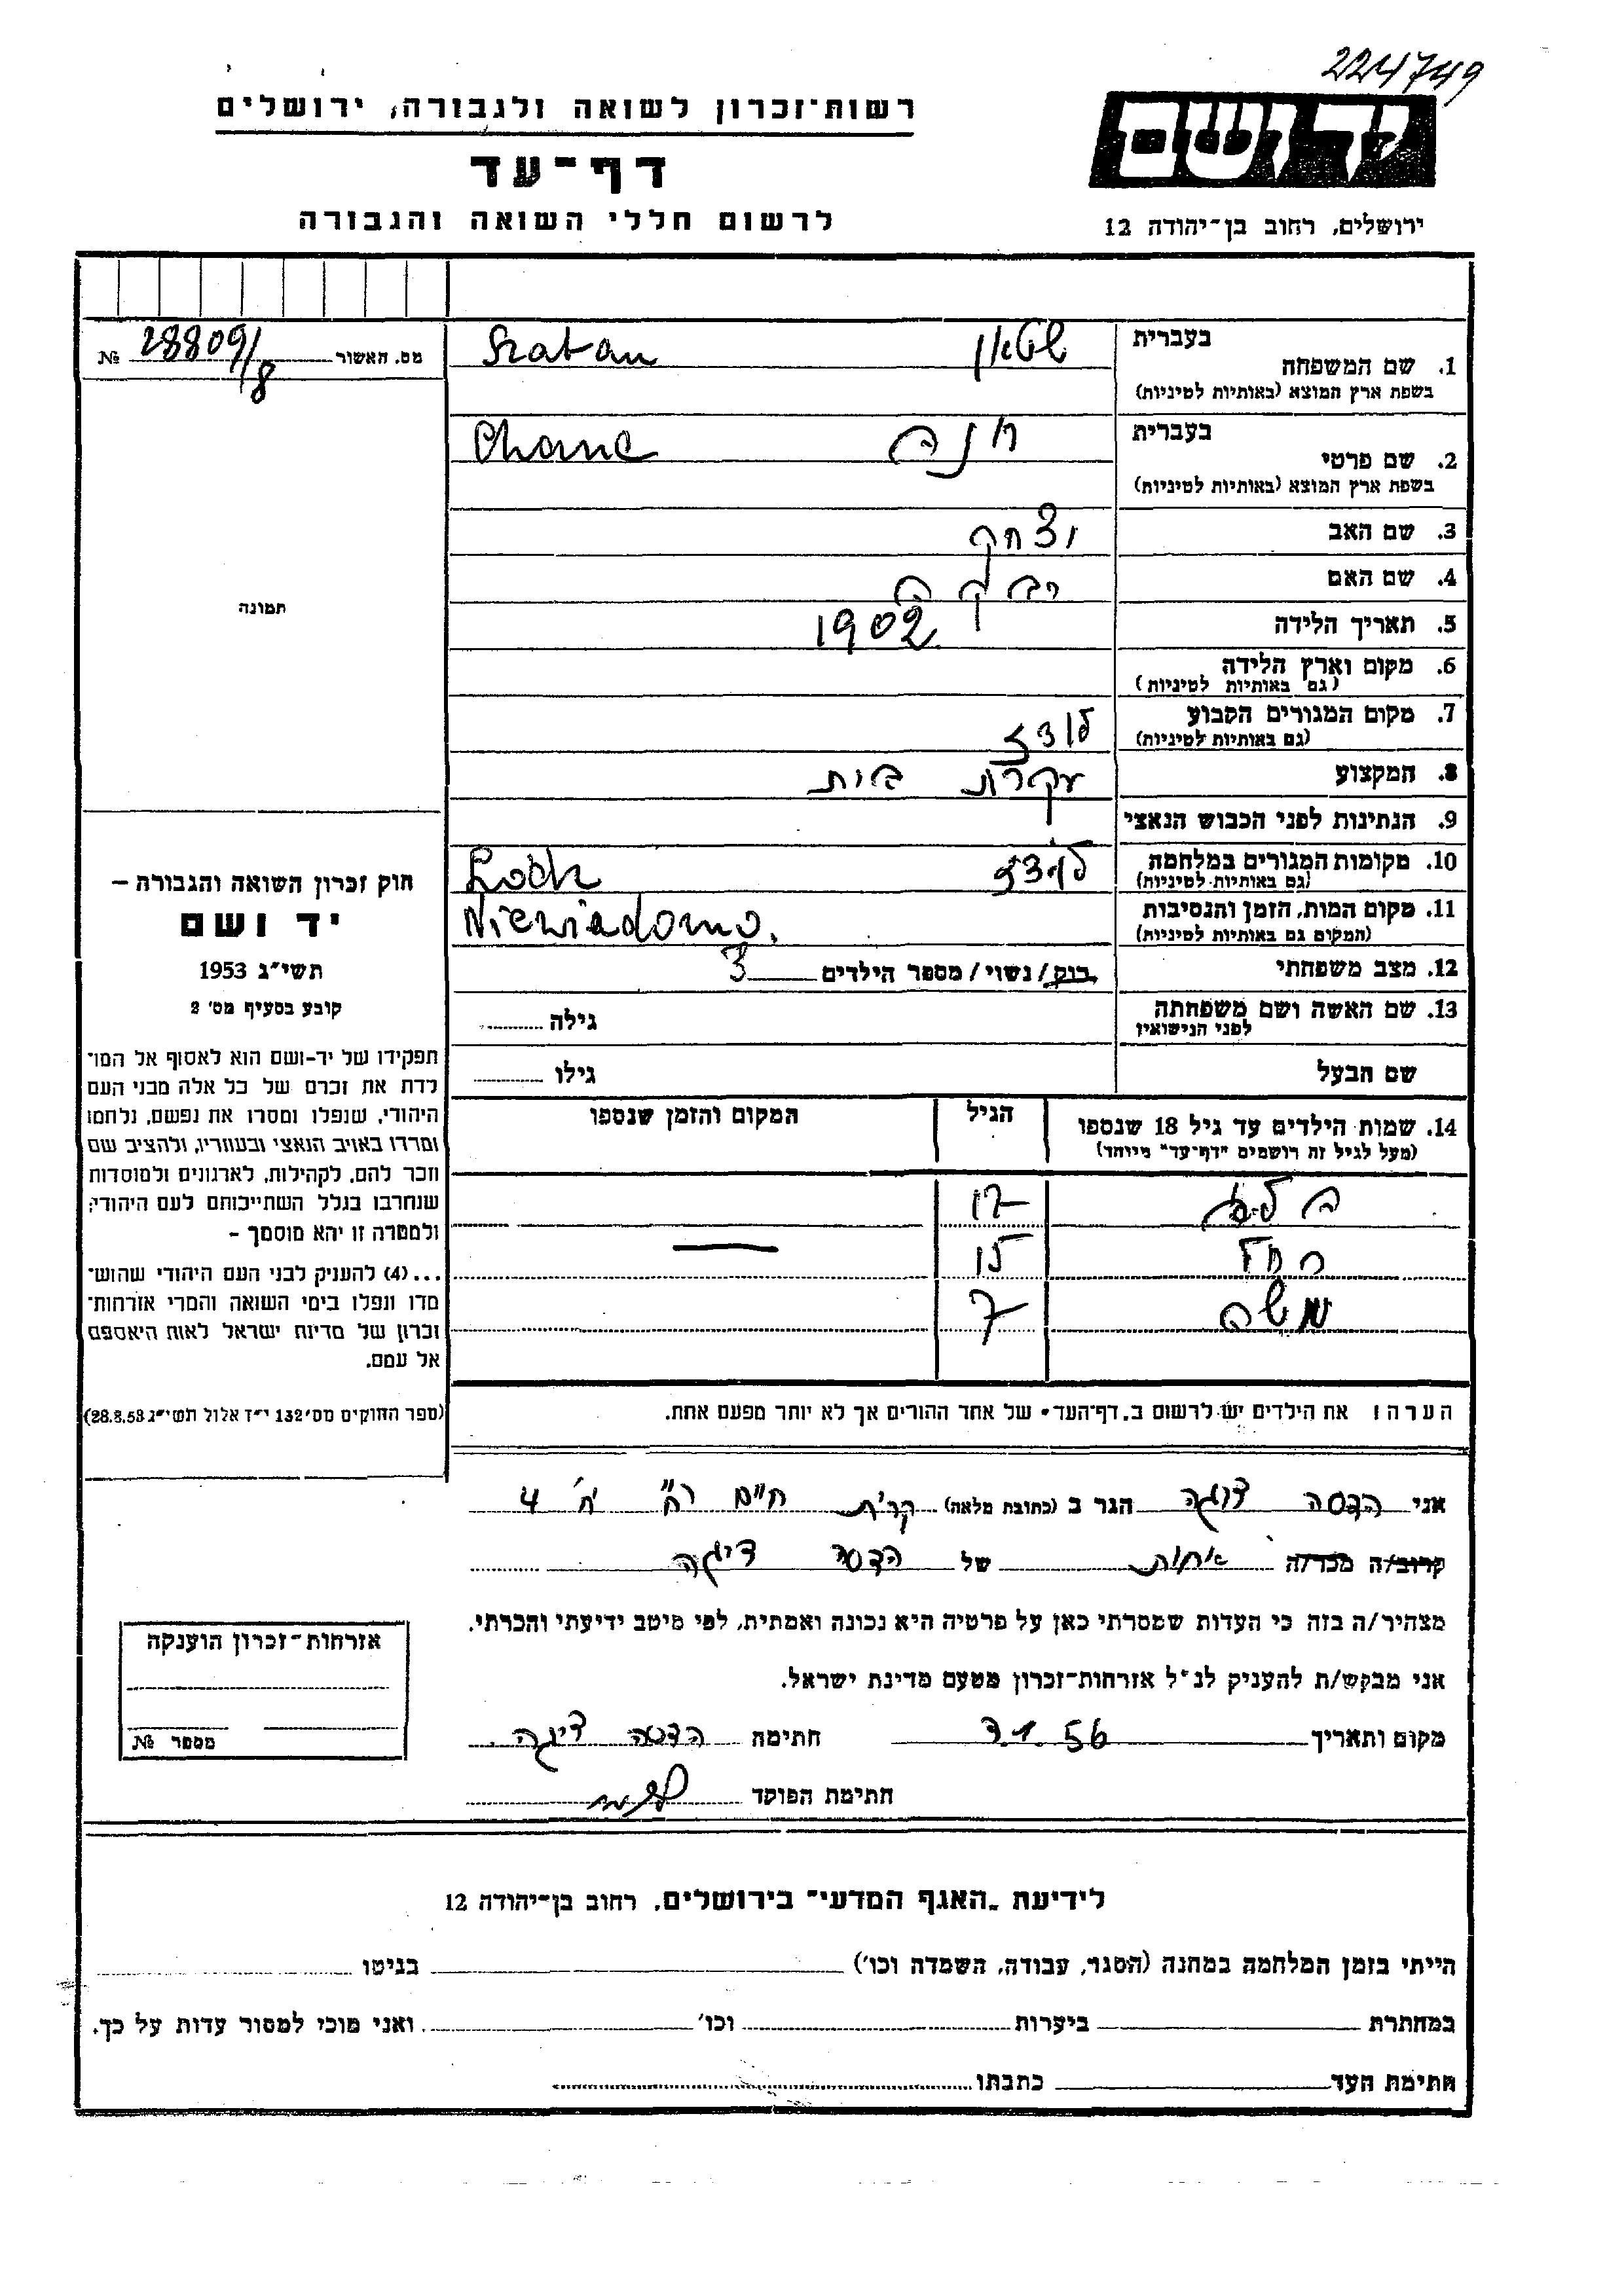 224749
רשות־זכרון לשואה ולגבורה, ירושלים
יד ושם
דף־עד
לרשום חללי השואה והגבורה
ירושלים, רחוב בן־יהודה 12
מס. האשור 28809/8 №
בעברית
1. שם המשפחה שטאן Szatan
בשפת ארץ המוצא (באותיות לטיניות)
בעברית
2. שם פרטי חנה Chana
בשפת ארץ המוצא (באותיות לטיניות)
3. שם האב יצחק
4. שם האם רבקה
5. תאריך הלידה 1902
6. מקום וארץ הלידה
(גם באותיות לטיניות)
7. מקום המגורים הקבוע לודז
(גם באותיות לטיניות)
8. המקצוע עקרת בית
9. הנתינות לפני הכבוש הנאצי
10. מקומות המגורים במלחמה לודז Lodz
(גם באותיות לטיניות)
11. מקום המות, הזמן והנסיבות Niewiadomo.
(המקום גם באותיות לטיניות)
12. מצב משפחתי רוק/נשוי/מספר הילדים 3
13. שם האשה ושם משפחתה גילה
לפני הנישואין
שם הבעל גילו
14. שמות הילדים עד גיל 18 שנספו הגיל המקום והזמן שנספו
(מעל לגיל זה רושמים "דף־עד" מיוחד)
17
15
משה 7
הערה: את הילדים יש לרשום ב"דף־העד" של אחד ההורים אך לא יותר מפעם אחת.
תמונה
חוק זכרון השואה והגבורה –
יד ושם
תשי"ג 1953
קובע בסעיף מס' 2
תפקידו של יד-ושם הוא לאסוף אל המו־
לדת את זכרם של כל אלה מבני העם
היהודי, שנפלו ומסרו את נפשם, נלחמו
ומרדו באויב הנאצי ובעוזריו, ולהציב שם
וזכר להם, לקהילות, לארגונים ולמוסדות
שנחרבו בגלל השתייכותם לעם היהודי;
ולמטרה זו יהא מוסמך –
...(4) להעניק לבני העם היהודי שהוש־
מדו ונפלו בימי השואה והמרי אזרחות־
זכרון של מדינת ישראל לאות היאספם
אל עמם.
(ספר החוקים מס' 132 י"ז אלול תשי"ג 28.8.53)
אני הדסה הגר ב (כתובת מלאה) קרית חיים רח' ח' 4
קרוב/ה מכר/ה אחות של הדסה
מצהיר/ה בזה כי העדות שמסרתי כאן על פרטיה היא נכונה ואמתית, לפי מיטב ידיעתי והכרתי.
אני מבקש/ת להעניק לנ"ל אזרחות־זכרון מטעם מדינת ישראל.
מקום ותאריך 7.1.56 חתימה הדסה
חתימת הפוקד
אזרחות־זכרון הוענקה
מספר №
לידיעת "האגף המדעי" בירושלים, רחוב בן־יהודה 12
הייתי בזמן המלחמה במחנה (הסגר, עבודה, השמדה וכו') בגיטו
במחתרת ביערות וכו' ואני מוכן למסור עדות על כך.
חתימת העד כתבתו